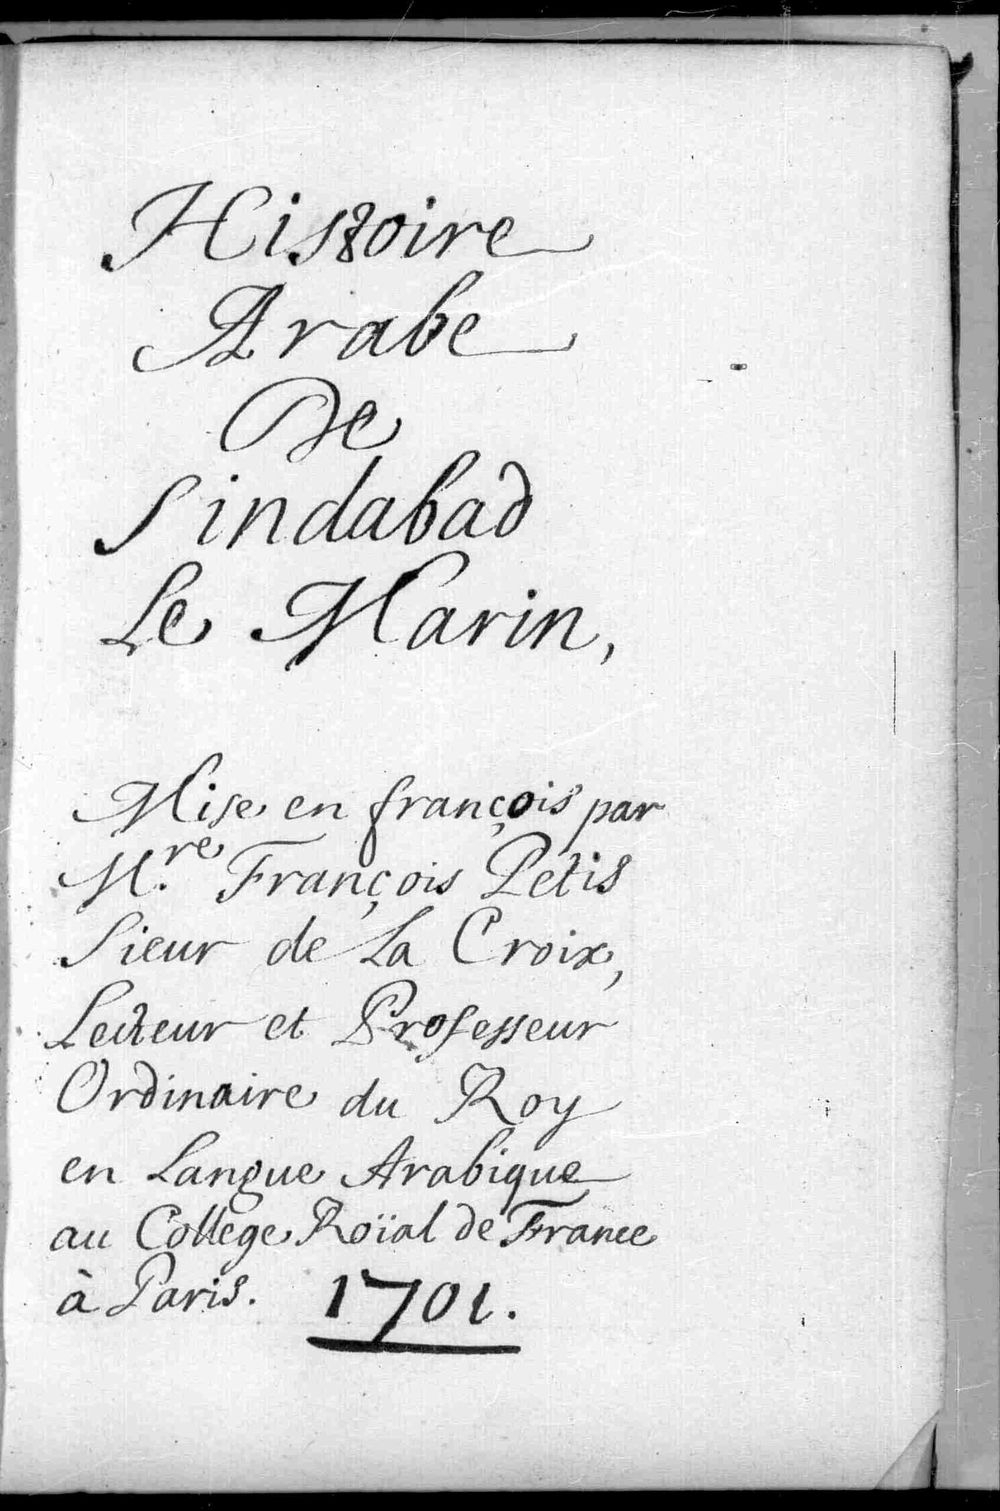 Histoire
Arabe
De
Sindabad
Le Marin,
Mise en françois par
M.re François Petis
Sieur de La Croix,
Lecteur et Professeur
Ordinaire du Roy
en Langue Arabique
au College Roïal de France
à Paris. 1701.